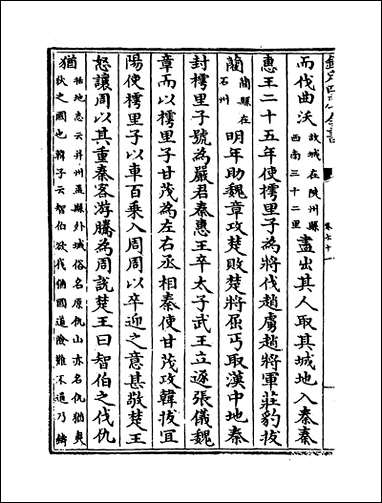 而伐曲沃故城在陜州縣西南三十二里盡出其人取其城地入秦秦
惠王二十五年使樗里子為將伐趙虜趙將軍莊豹拔
藺藺縣在石州明年助魏章攻楚敗楚將屈丐取漢中地秦
封樗里子號為嚴君秦惠王卒太子武王立逐張儀魏
章而以樗里子甘茂為左右丞相秦使甘茂攻韓拔宜
陽使樗里子以車百乗入周周以卒迎之意甚敬楚王
怒讓周以其重秦客游騰為周説楚王曰智伯之伐仇
猶括地志云并州盂縣外城俗名原仇山亦名仇猶夷狄之國也韓子云智伯欲伐仇猶國道險難不通乃鑄